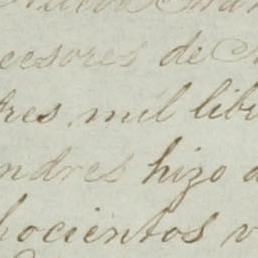 Nueva
cesores de
tres mil libr
ndres hizo
hocientos v